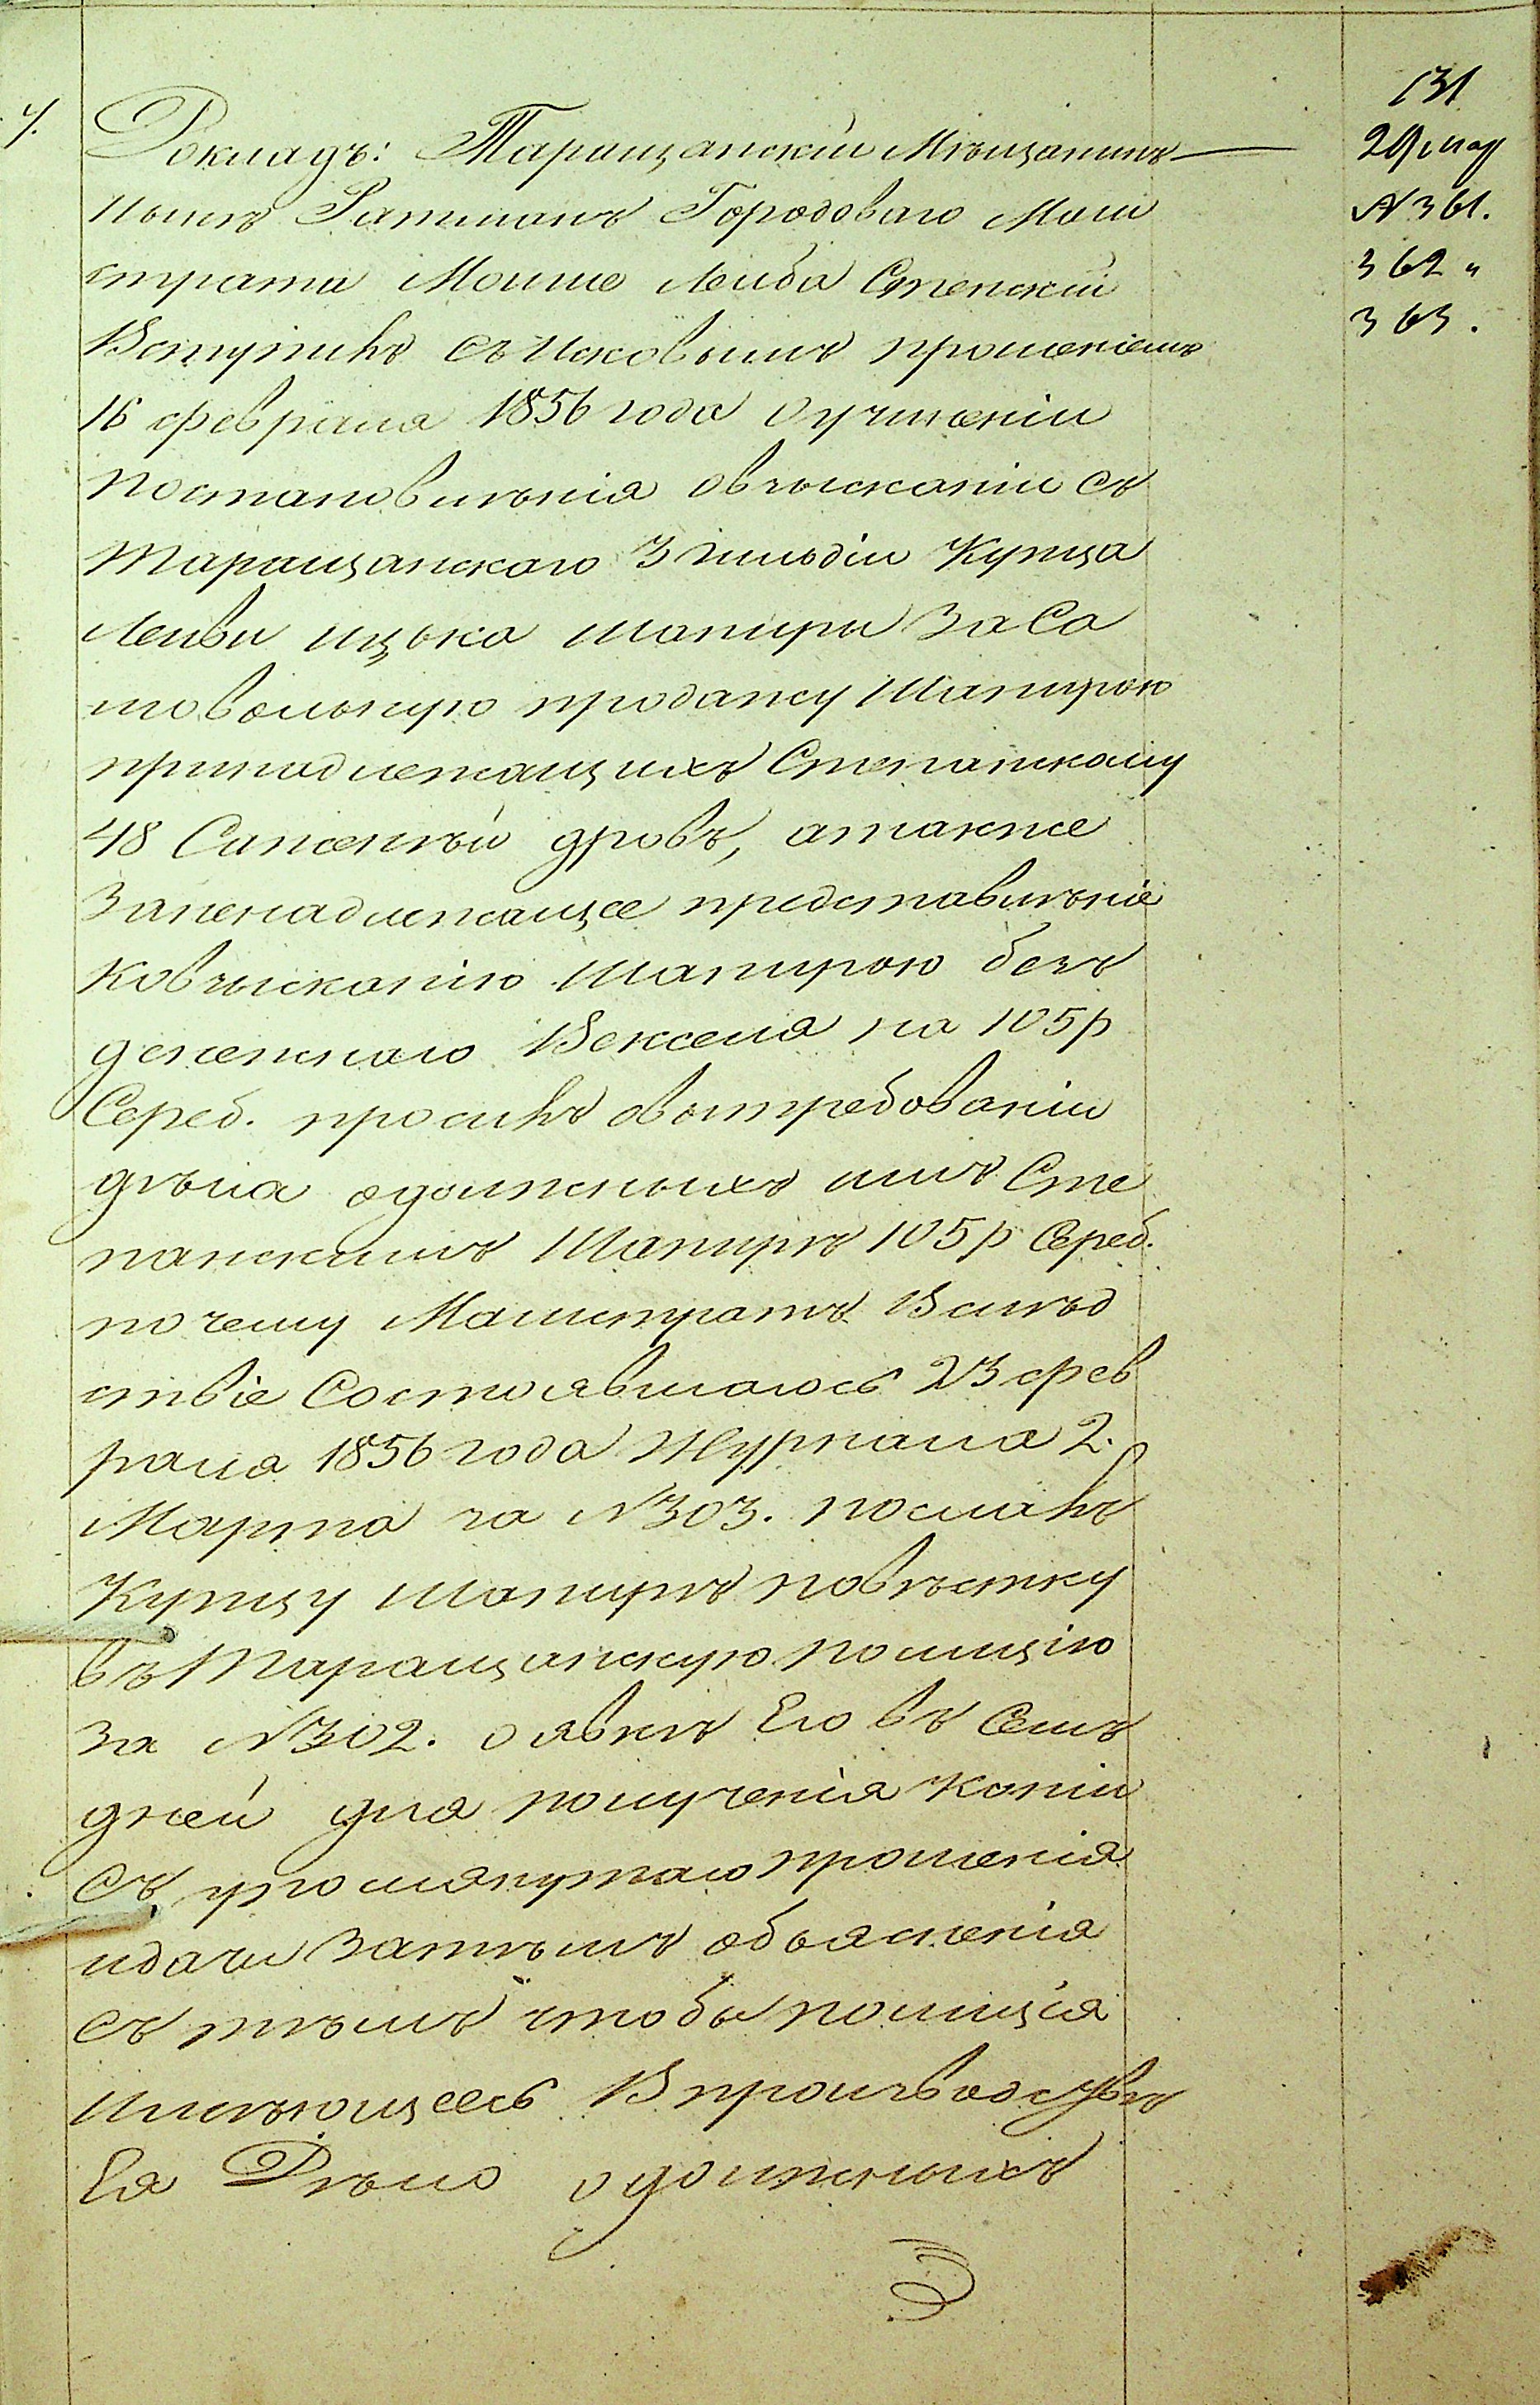 131
29 мар
N 361.
362 "
363.
Докладъ: Таращанскій Мѣщанинъ
нынѣ Ратманъ Городоваго Маги
страта Мошко Лейба Степскій
Вступилъ съ исковымъ прошеніемъ
16 февраля 1856 года о учиненіи
постановлѣнія овзысканіи съ
таращанскаго 3 гильдіи Купца
Лейви Ицька Шапиры За Са
мовольную продажу Шапирою
принадлежащихъ Степанскому
48 Саженѣй дровъ, атакже
Заненадлежащее представлѣніе
Ковзысканію Шапирою без
денежнаго Векселя на 105 р
Сереб. просилъ овытребованіи
дѣла одолжныхъ имъ Сте
панскимъ Шапирѣ 105 р Сереб.
по чему Магистратъ Вслѣд
ствіе Состоявшагось 23 фев
раля 1856 года Журнала 2.
Марта за N 303. послалъ
Купцу Шапирѣ повѣстку
въ Таращанскую полицію
За N 302. о явкѣ Его въ Семь
дней для полученія Копіи
съ упомянутаго прошенія
идачи Затѣмъ объясненія
съ тѣмъ чтобы полиція
имѣющеесь Впроизводствѣ
Ея Дѣло одолжныхъ